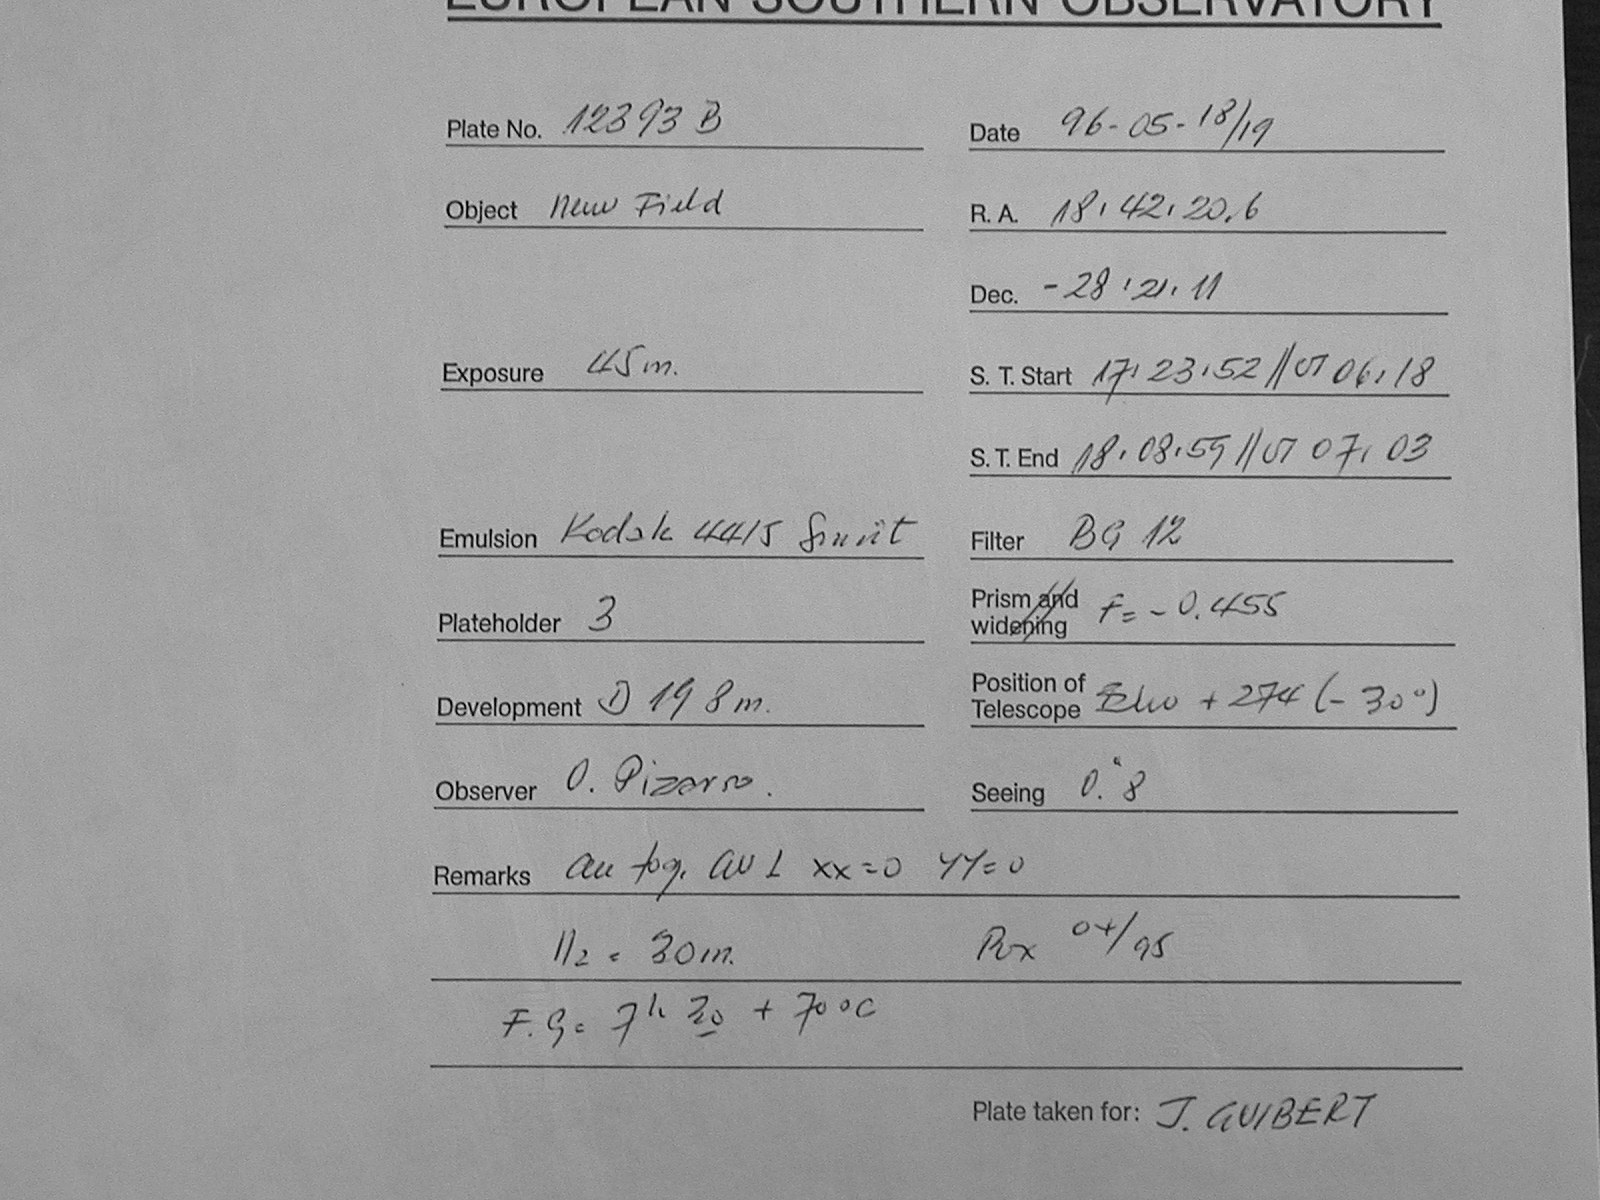 EUROPEAN SOUTHERN OBSERVATORY
Plate No. 12393 B
Date 96-05-18/19
Object New Field
R. A. 18, 42, 20.6
Dec. -28, 21, 11
Exposure 45 m.
S. T. Start 17, 23, 52 // UT 06, 18
S. T. End 18, 08, 59 // UT 07, 03
Emulsion Kodak 4415
Filter BG 12
Prism and widening F= -0.455
Plateholder 3
Development D 19 8 m.
Position of Telescope + 274 (-30°)
Observer O. Pizarro.
Seeing 0."8
Remarks xx=0 YY=0
= 30 m. /95
F.G= 7h 30 + 70°C
Plate taken for: J. GUIBERT